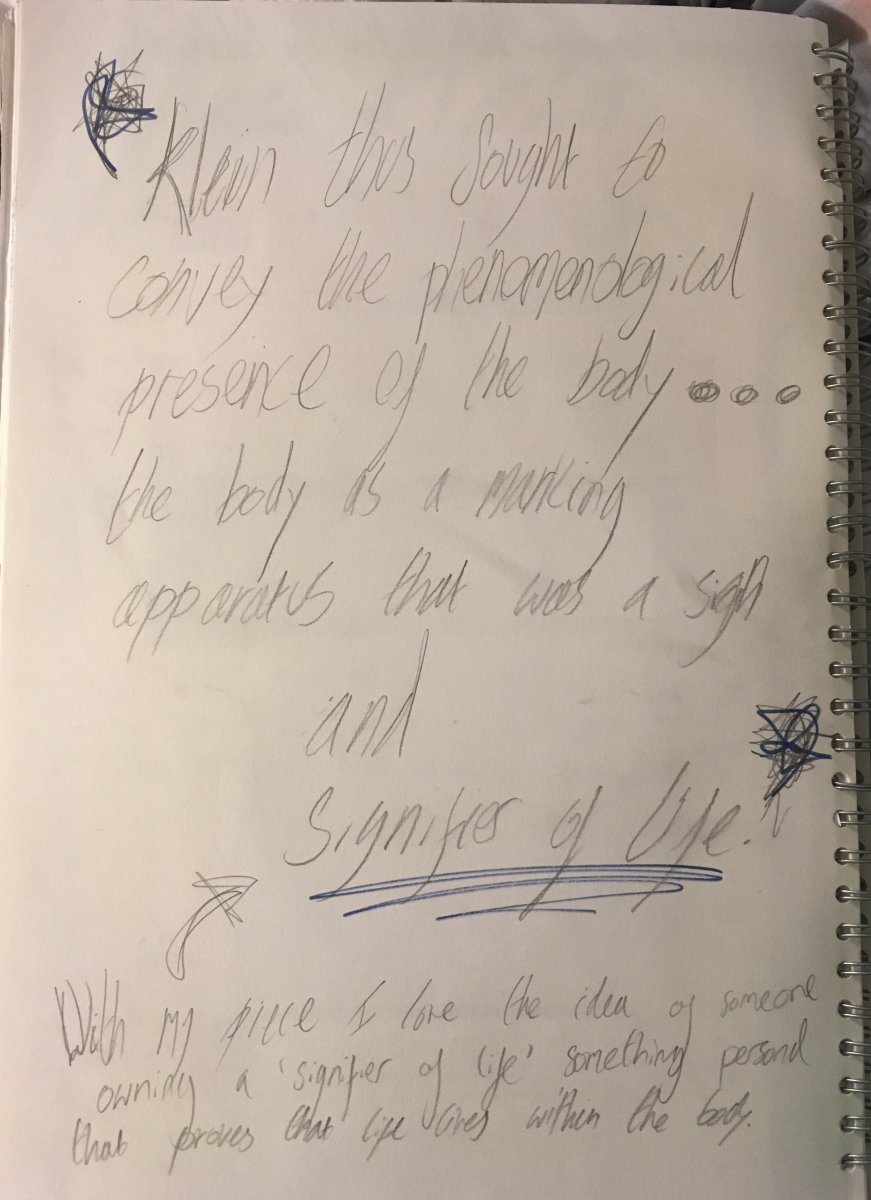 Klein thus sought to
convey the phenomenological
presence of the body...
the body as a marking
apparatus that was a sign
and
Signifier of Life.
With my piece I love the idea of someone
owning a 'signifier of life' something personal
that proves that life lives within the body.